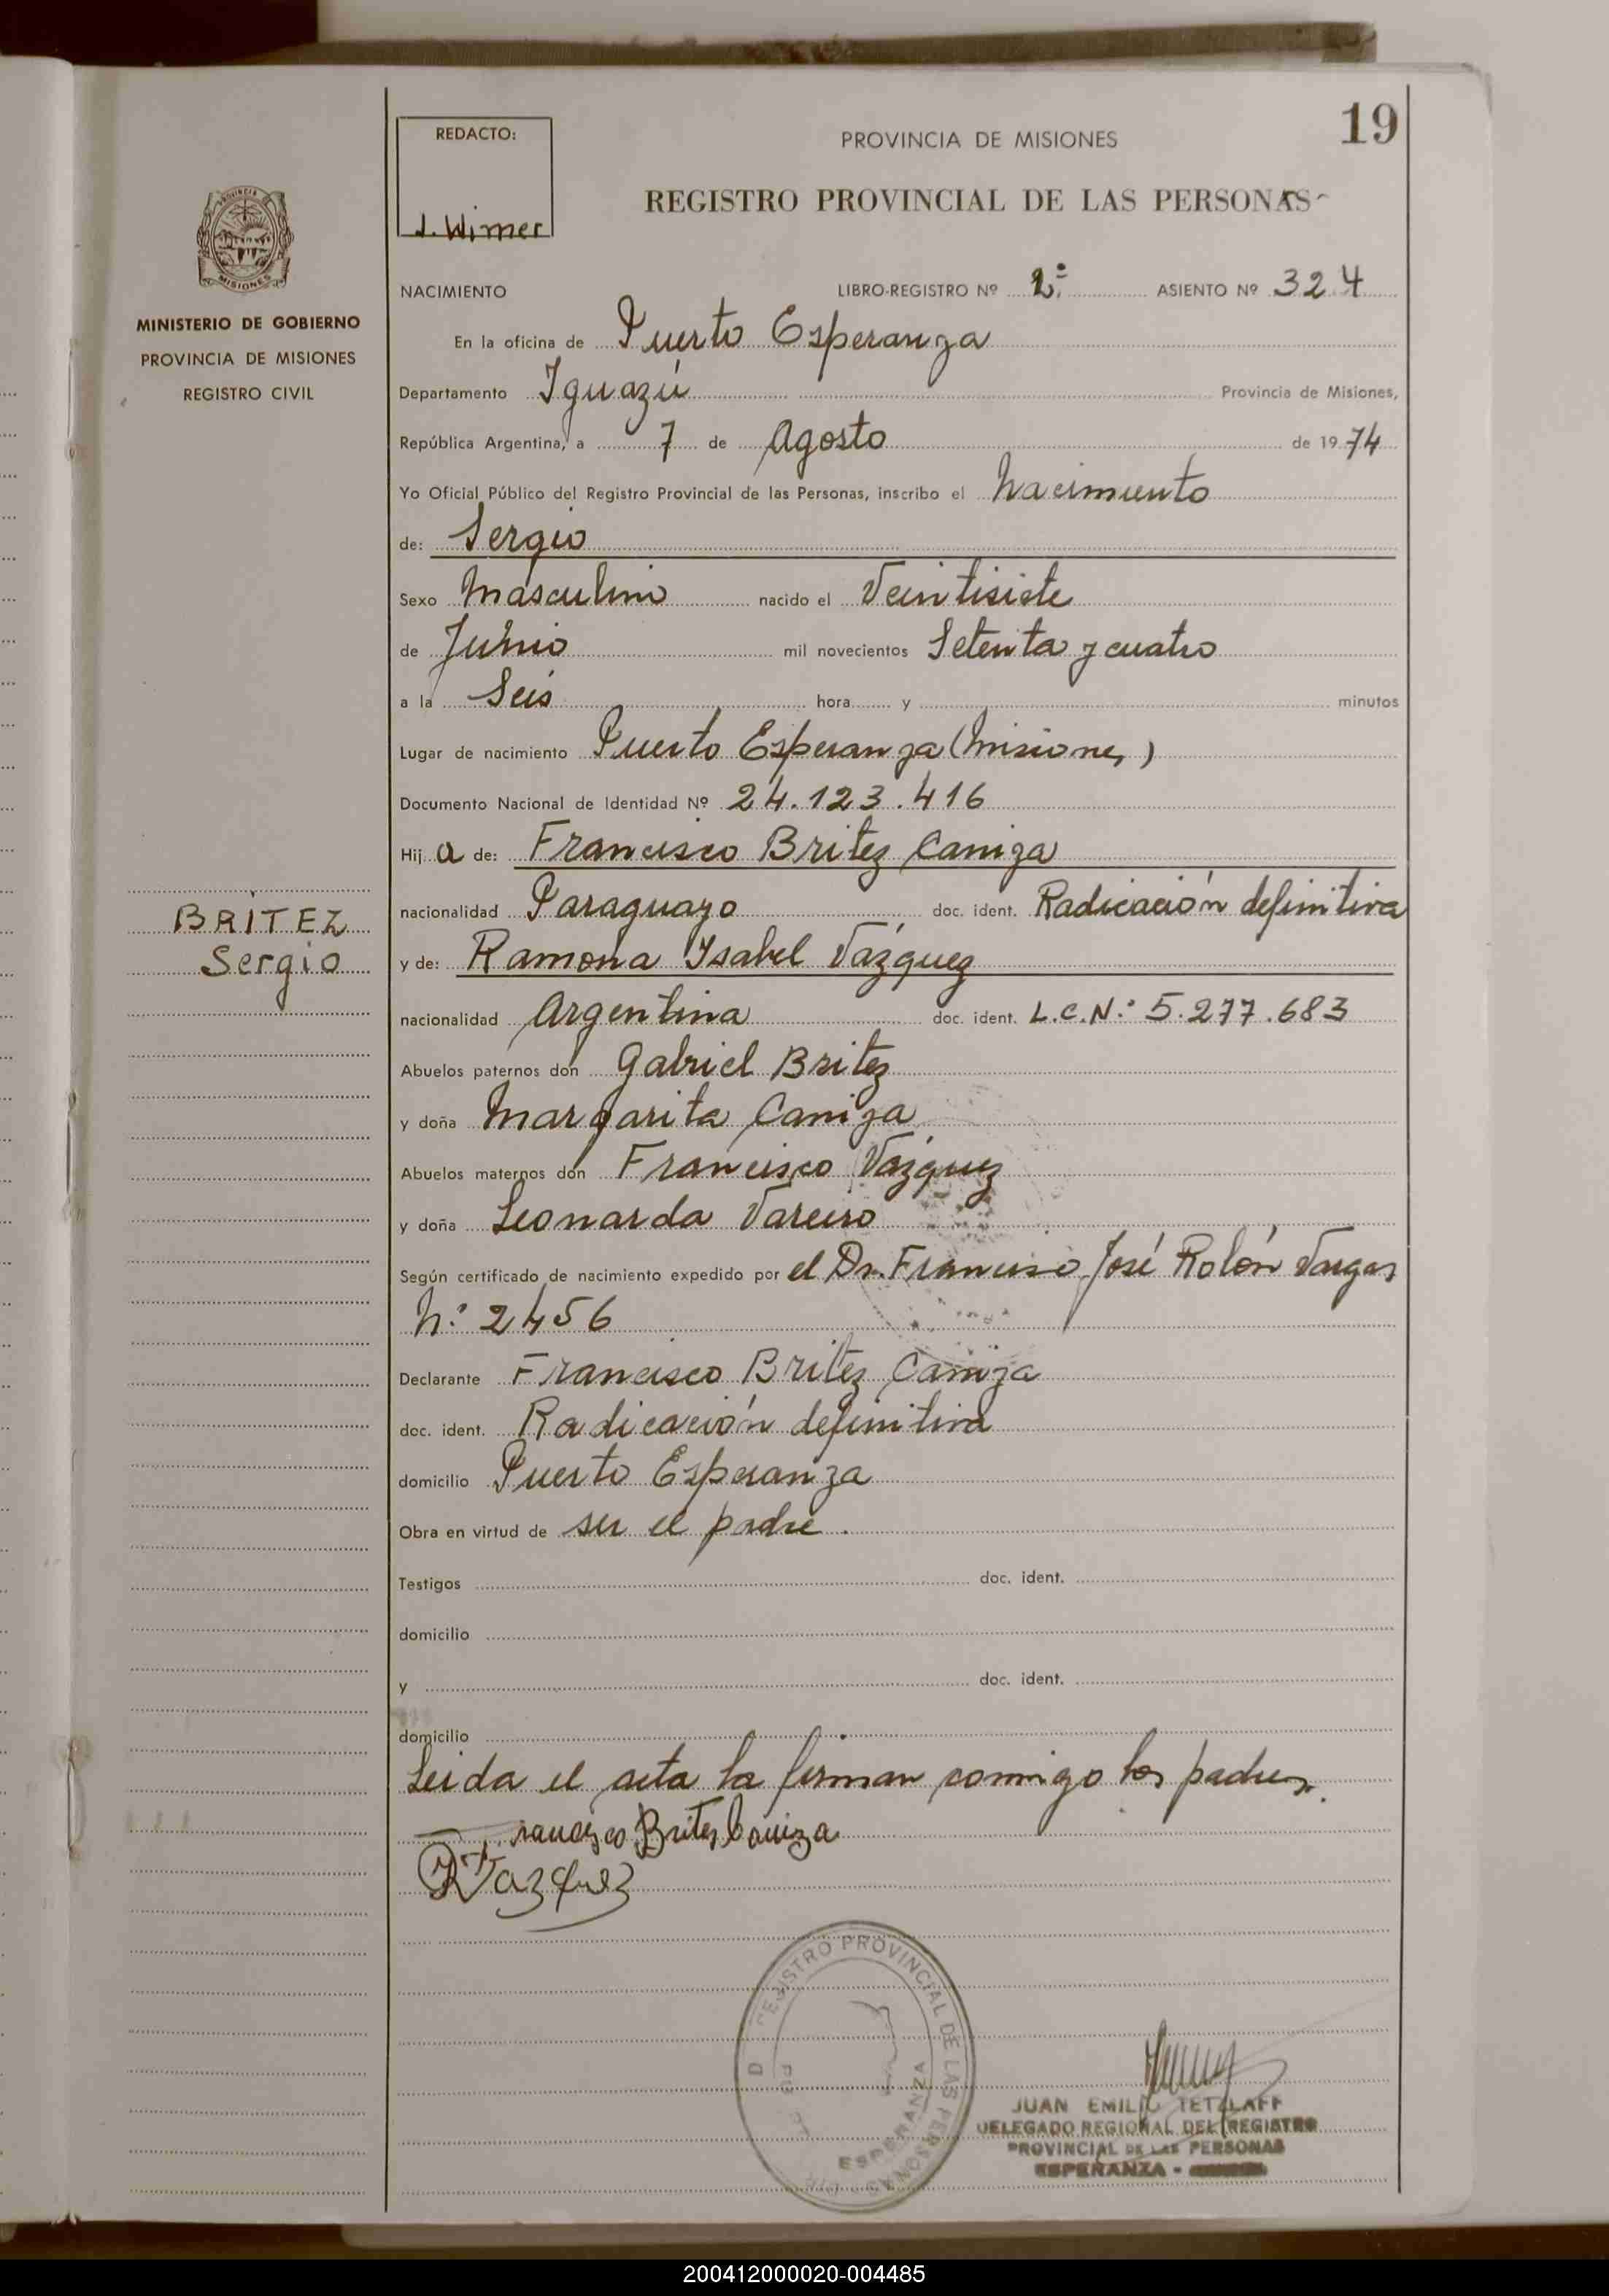 19
REDACTO:
J. Wimer
PROVINCIA DE MISIONES
REGISTRO PROVINCIAL DE LAS PERSONAS
PROVINCIA
MISIONES
MINISTERIO DE GOBIERNO
PROVINCIA DE MISIONES
REGISTRO CIVIL
NACIMIENTO LIBRO-REGISTRO Nº 2º ASIENTO Nº 324
En la oficina de Puerto Esperanza
Departamento Iguazú Provincia de Misiones,
República Argentina, a 7 de Agosto de 1974
Yo Oficial Público del Registro Provincial de las Personas, inscribo el Nacimiento
de: Sergio
Sexo Masculino nacido el Veintisiete
de Junio mil novecientos Setenta y cuatro
a la Seis hora y minutos
Lugar de nacimiento Puerto Esperanza (Misiones)
Documento Nacional de Identidad Nº 24.123.416
Hij a de: Francisco Britez Caniza
nacionalidad Paraguayo doc. ident. Radicación definitiva
BRITEZ
Sergio
y de: Ramona Isabel Vázquez
nacionalidad Argentina doc. ident. L.C.N: 5.277.683
Abuelos paternos don Gabriel Britez
y doña Margarita Caniza
Abuelos maternos don Francisco Vázquez
y doña Leonarda Vareiro
Según certificado de nacimiento expedido por el Dr. Francisco José Rolón Vargas
N: 2456
Declarante Francisco Britez Caniza
doc. ident. Radicación definitiva
domicilio Puerto Esperanza
Obra en virtud de ser el padre.
Testigos doc. ident.
domicilio
y doc. ident.
domicilio
Leida el acta la firman conmigo los padres.
Francisco Britez Caniza
R Vazquez
REGISTRO PROVINCIAL DE LAS PERSONAS
ESPERANZA
JUAN EMILIO TETZLAFF
DELEGADO REGIONAL DEL REGISTRO
PROVINCIAL DE LAS PERSONAS
ESPERANZA -
200412000020-004485